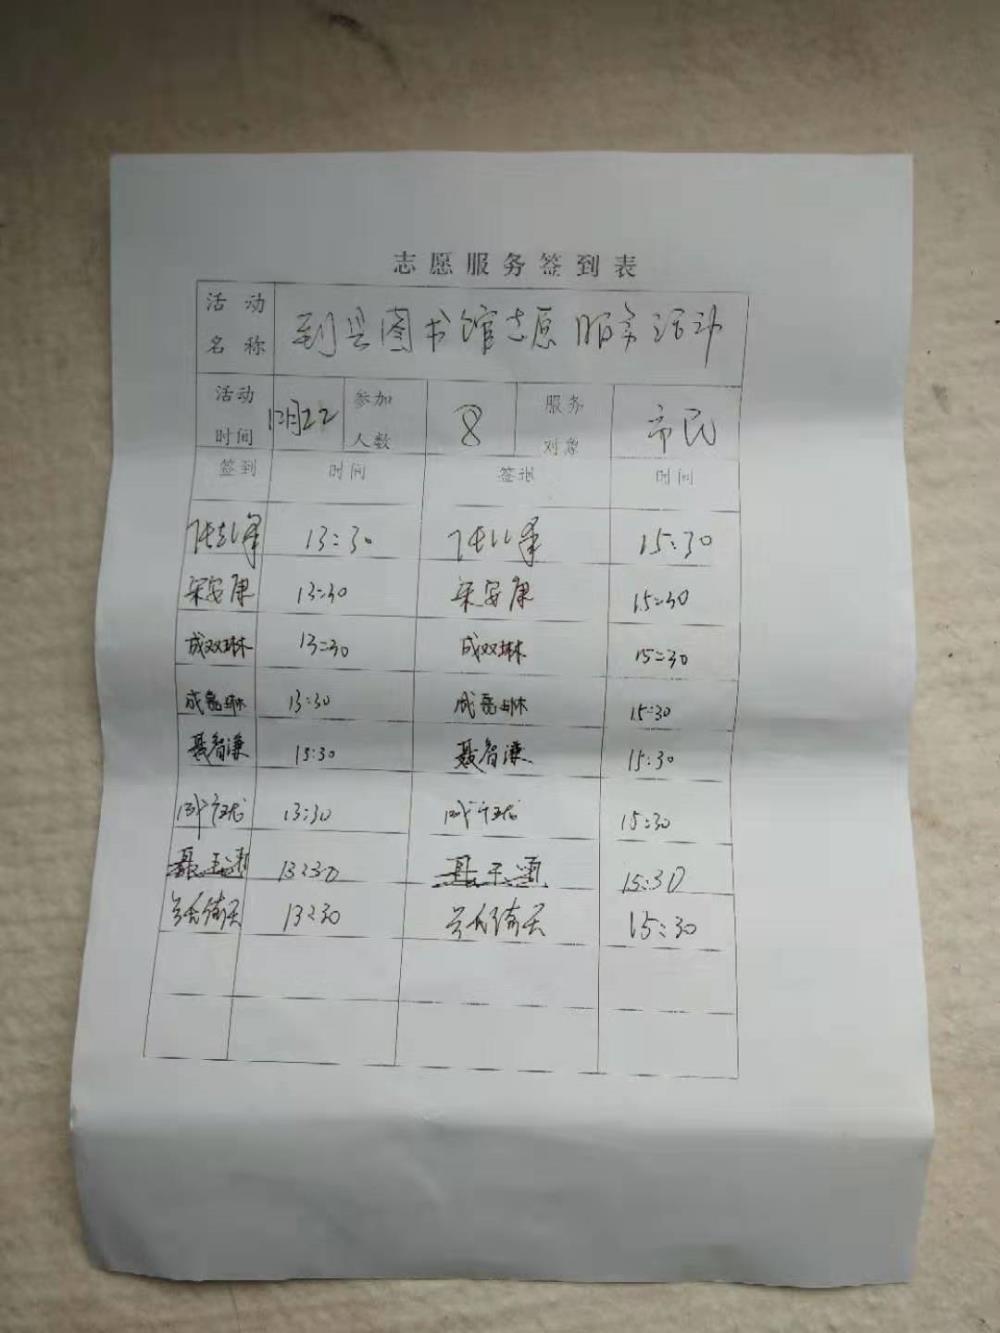 志愿服务签到表
活动名称 到县图书馆志愿服务活动
活动时间 12月22 参加人数 8 服务对象 市民
签到 时间 签退 时间
13:30 15:30
宋安康 13:30 宋安康 15:30
成双琳 13:30 成双琳 15:30
成磊琳 13:30 成磊琳 15:30
聂智谦 15:30 聂智谦 15:30
13:30 15:30
聂玉涵 13:30 15:30
13:30 15:30